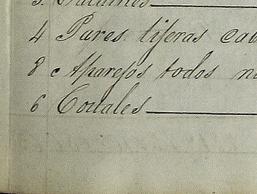 4 Pares tiferas cab
8 Aparejos todos n
6 Codales